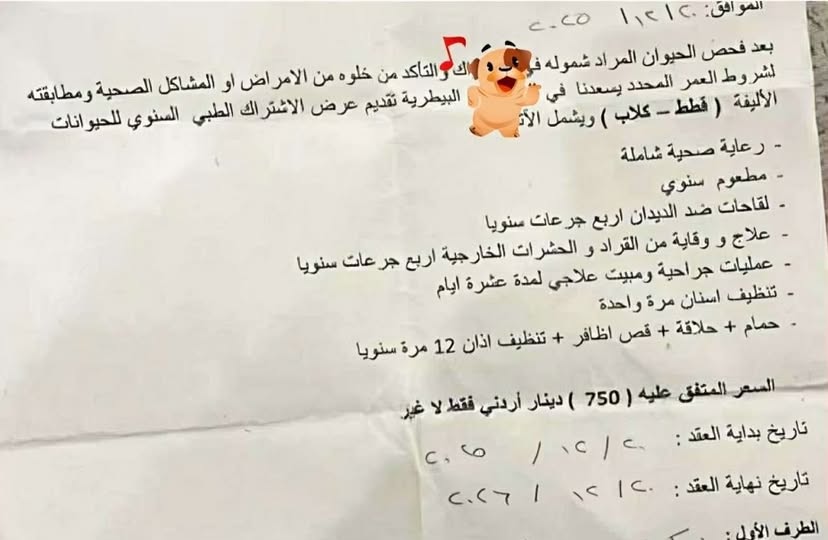 الموافق: ٢٠ / ١٢ / ٢٠٢٥
بعد فحص الحيوان المراد شموله في والتأكد من خلوه من الامراض او المشاكل الصحية ومطابقته
لشروط العمر المحدد يسعدنا في البيطرية تقديم عرض الاشتراك الطبي السنوي للحيوانات
الأليفة ( قطط – كلاب ) ويشمل
- رعاية صحية شاملة
- مطعوم سنوي
- لقاحات ضد الديدان اربع جرعات سنويا
- علاج و وقاية من القراد و الحشرات الخارجية اربع جرعات سنويا
- عمليات جراحية ومبيت علاجي لمدة عشرة ايام
- تنظيف اسنان مرة واحدة
- حمام + حلاقة + قص اظافر + تنظيف اذان 12 مرة سنويا
السعر المتفق عليه ( 750 ) دينار أردني فقط لا غير
تاريخ بداية العقد : ٢٠ / ١٢ / ٢٠٢٥
تاريخ نهاية العقد : ٢٠ / ١٢ / ٢٠٢٦
الطرف الأول: